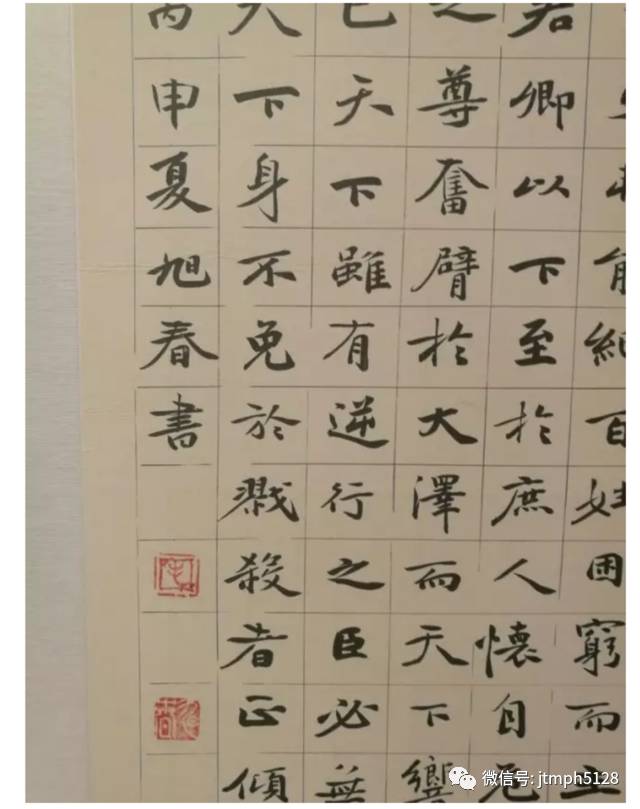 能紀百姓困窮而主
君卿以下至於庶人懷自危
之尊奮臂於大澤而天下響
已天下雖有逆行之臣必無
天下身不免於戮殺者正傾
丙申夏旭春書
微信号: jtmph5128